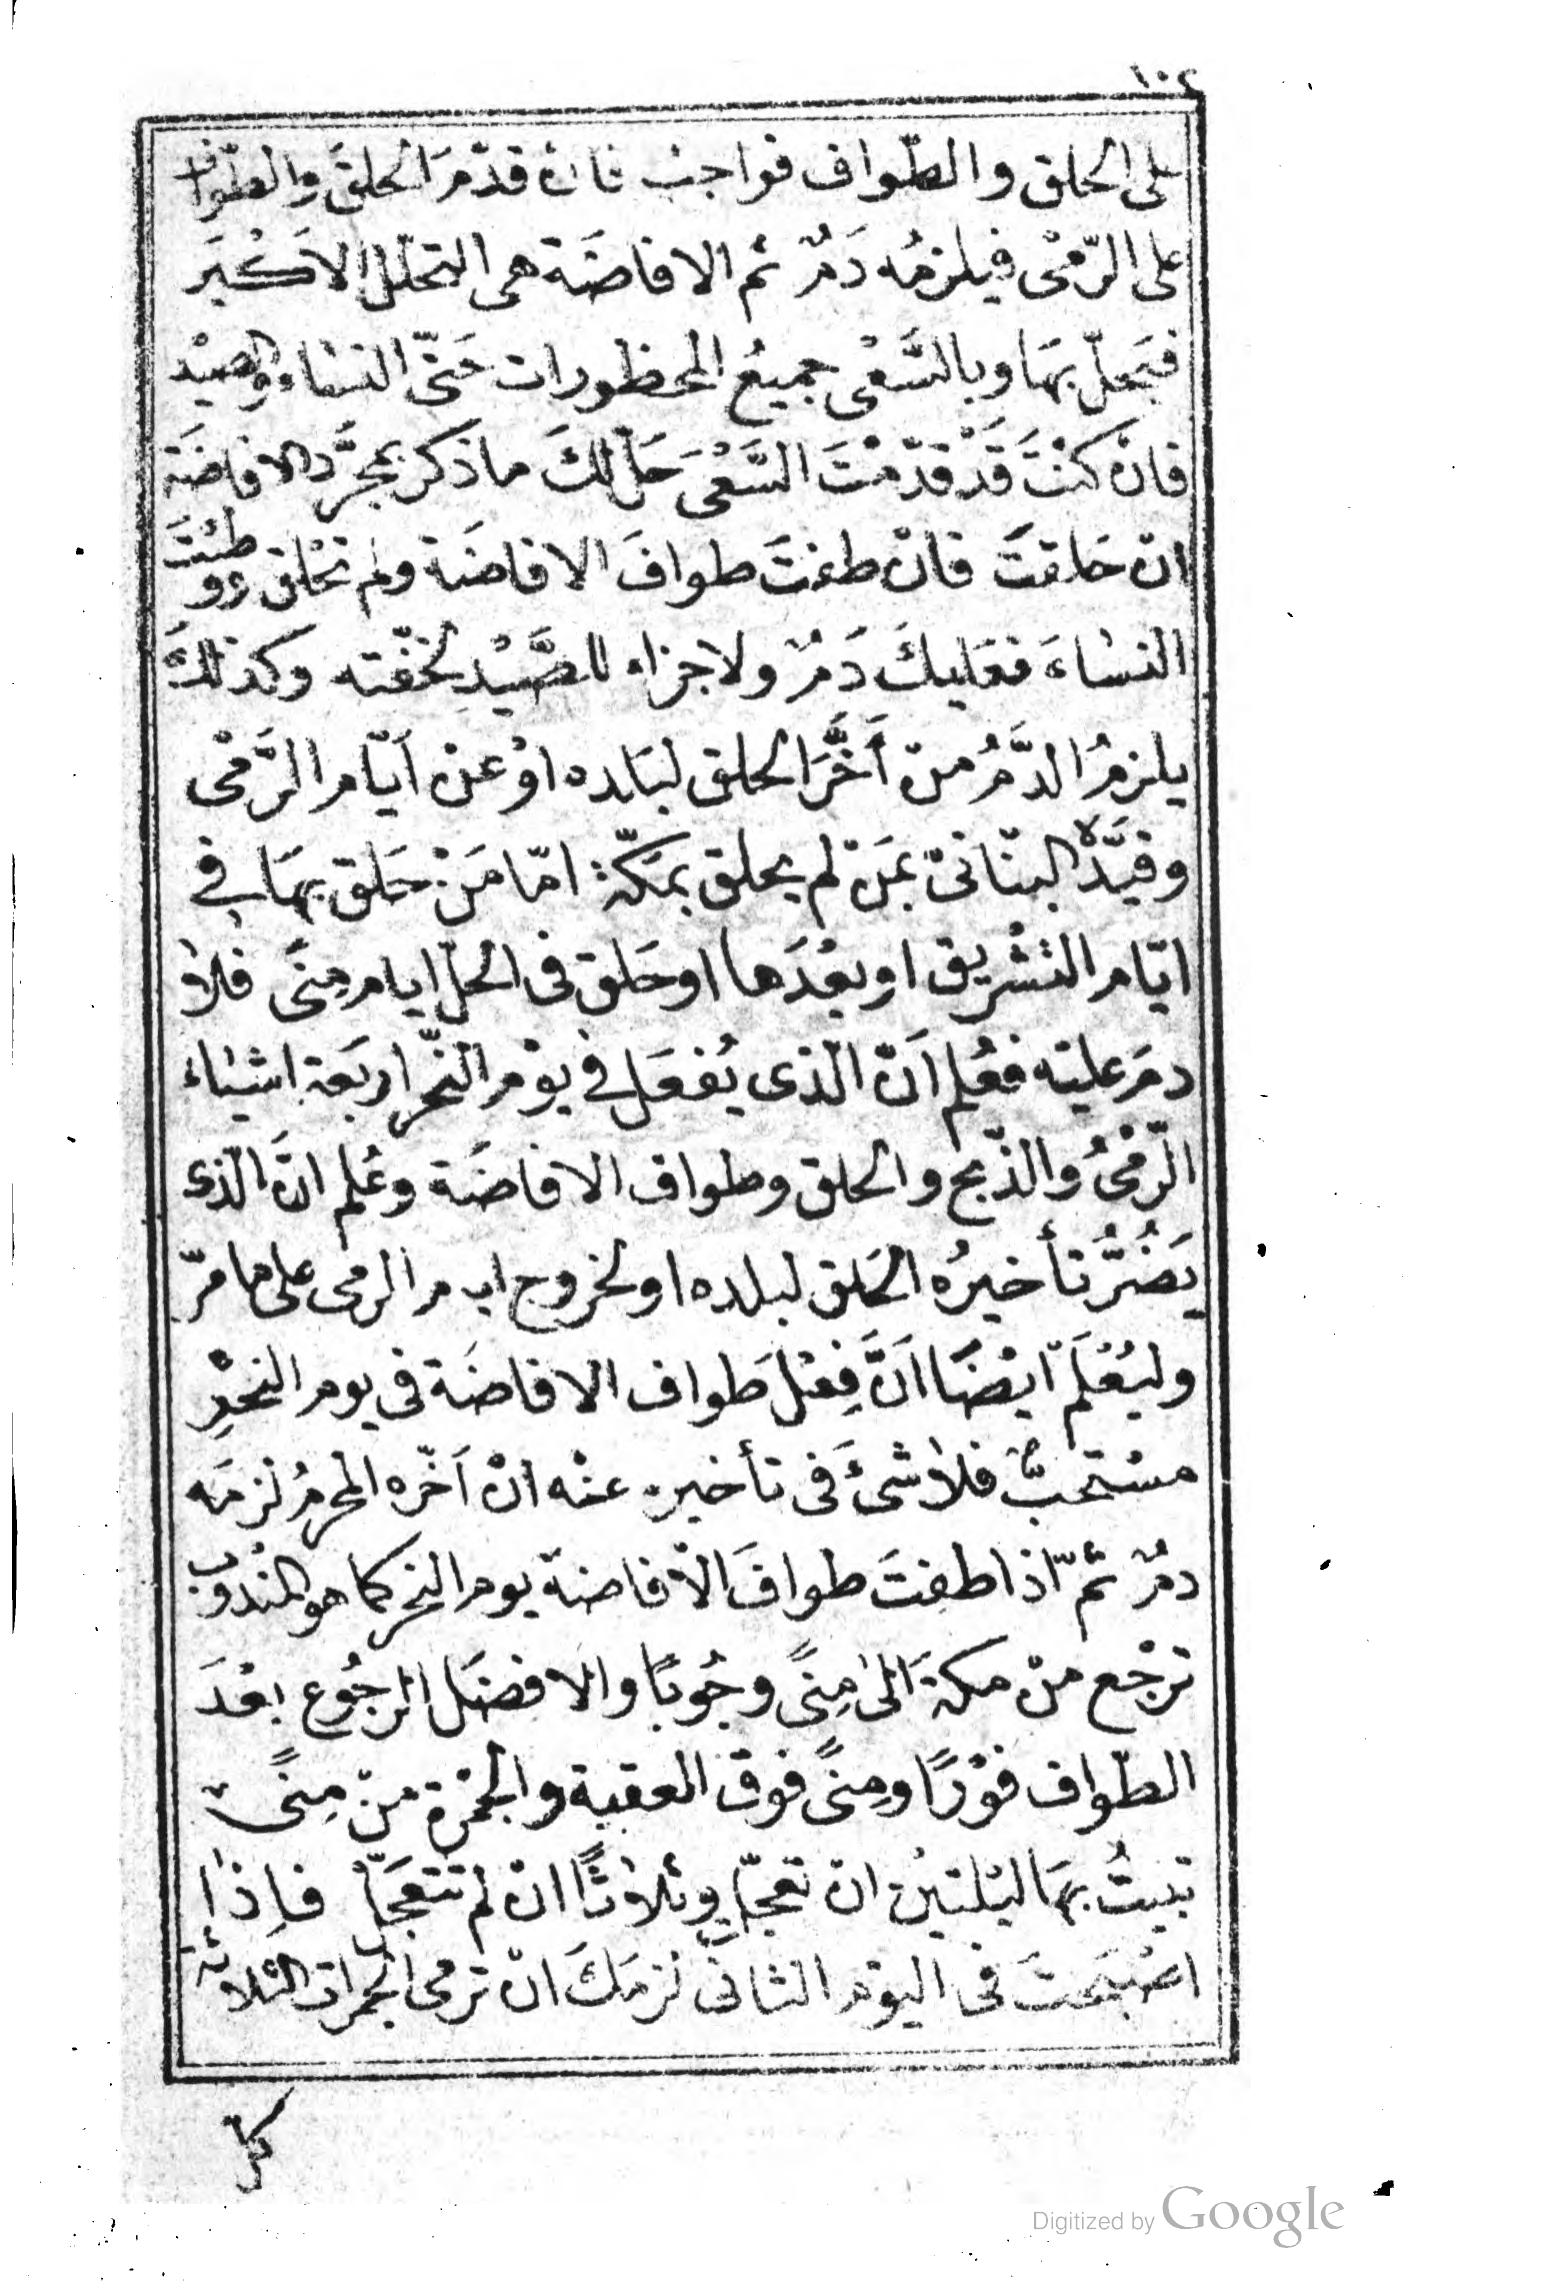 ١٠٢
على الحلق والطّواف فواجبٌ فانْ قدّمَ الحلقَ والطّوافَ
على الرّمْى فيلزمُه دَمٌ ثم الافاضَة هى التحلّل الاَكْبَر
فيَحلّ بهَا وبالسَّعْى جميعُ المحظورات حَتّى النسَاء والصيْد
فانْ كنْتَ قَدْ قدّمْتَ السَّعْىَ حَلّ لكَ ما ذكر بمجرَّد الافاضَة
انْ حَلقتَ فانْ طفتَ طوافَ الافاضَة ولم تحْلق ووَطئتَ
النسَاءَ فعَليكَ دَمٌ ولا جزاء للصَّيْدِ لخفّته وكذلكَ
يلزمُ الدَّمُ منْ أخَّرَ الحلق لبَلده اوْ عنْ اَيّام الرَّمْى
وقيَّدهُ البنّانىّ بمَنْ لم يحلق بمَكّة امّا مَنْ حَلق بهَا في
ايّام التشْريق او بعْدَها او حَلق فى الحلّ ايام مِنًى فلا
دمَ عليْه فعُلم اَنّ الّذى يُفعَل في يوْم النّحر اربَعة اشيَاء
الرّمْىُ والذّبح والحلق وطواف الافاضَة وعُلم انَّ الّذى
يَضُرُّ تأخيرُه الحَلق لبلده او لخروج ايام الرمى على ما مرّ
وليُعْلَم ايْضًا اَنَّ فِعْل طَواف الافاضَة فى يوم النحْرِ
مسْتحبٌّ فلا شىْءَ فى تأخيره عنْه انْ اَخّره المحرمُ لزمَه
دمٌ ثمّ اذا طفتَ طوافَ الاْفاضة يوم النحر كما هو المندوب
ترْجع منْ مكةَ الى مِنًى وجُوبًا والافضَل الرجُوع بعْدَ
الطّواف فوْرًا ومِنًى فوق العقبة والجمْرة منْ مِنًى
تبيتُ بهَا ليْلتيْن انْ تعجّل وثلاثًا انْ لم تتعجّل فاِذا
اصْبَحتَ فى اليوْم الثانى لزمَكَ انْ ترْمى الجمرات الثلاثة
كل
Digitized by Google